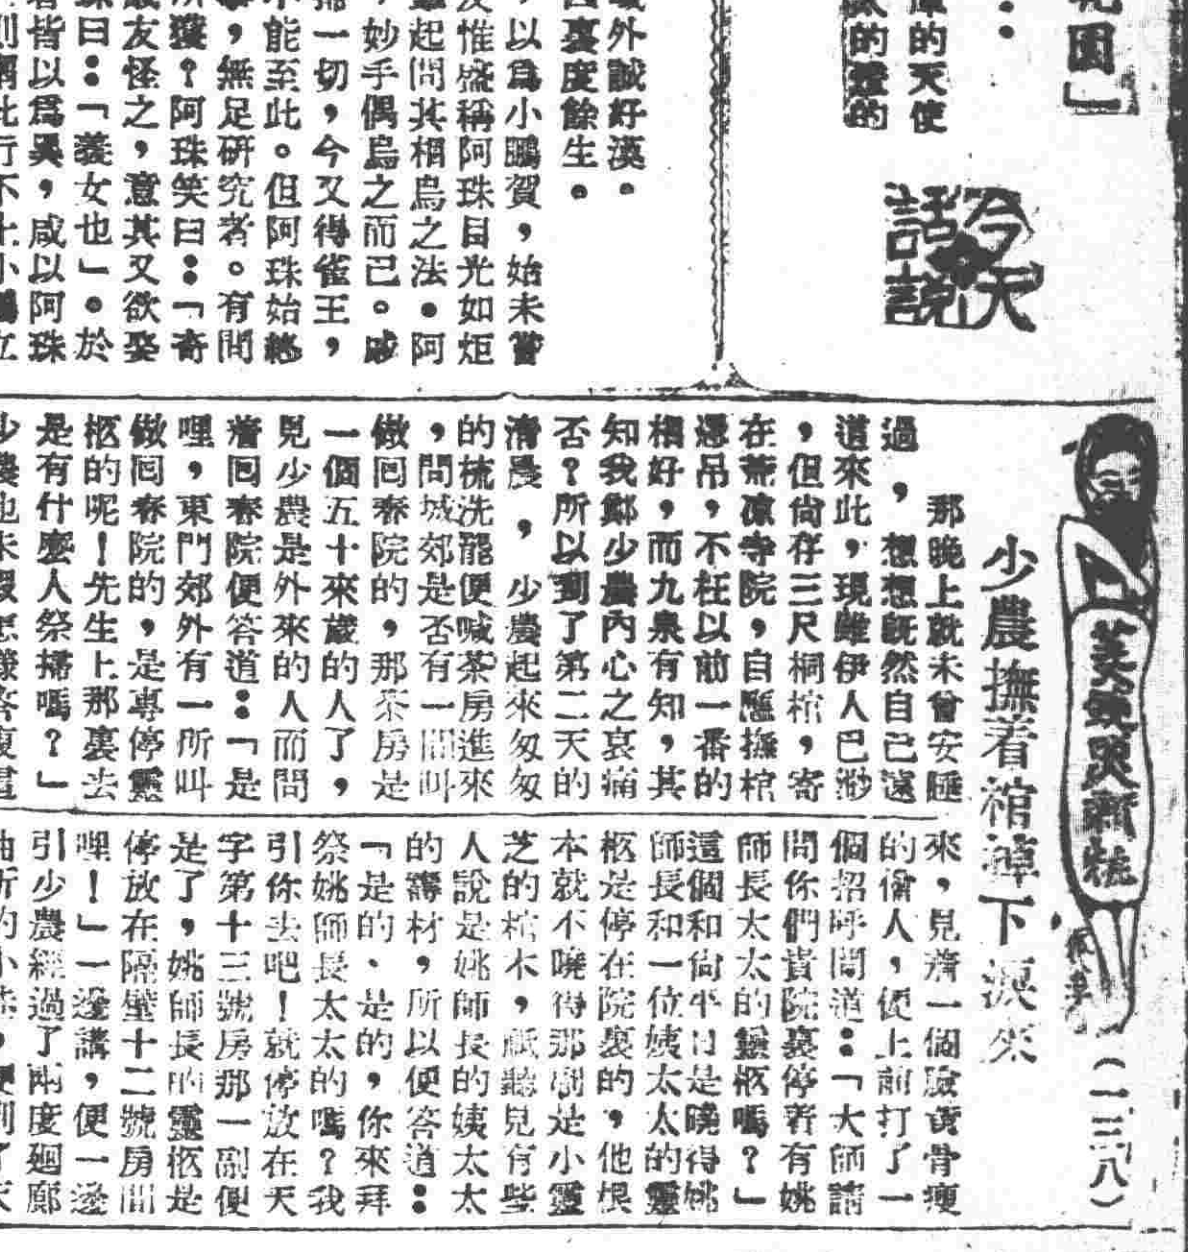 花園」
：
的天使
的靈的
今天
話說
外誠好漢。
裏度餘生。
，以爲小鵬賀，始未嘗
惟盛稱阿珠目光如炬
起問其相烏之法。阿
，妙手偶爲之而已。咸
一切，今又得雀王，
能至此。但阿珠始終
，無足研究者。有問
獲？阿珠笑曰：「奇
友怪之，意其又欲娶
曰：「義女也」。於
皆以爲異，咸以阿珠
（一三八）
少農撫着棺掉下淚來
那晚上就未曾安睡
過，想想既然自己遠
道來此，現雖伊人已渺
，但尙存三尺桐棺，寄
在荒凉寺院，自應撫棺
還吊，不枉以前一番的
相好，而九泉有知，其
知我鄭少農內心之哀痛
否？所以到了第二天的
清晨，少農起來匆匆
的梳洗罷便喊茶房進來
，問城郊是否有一間叫
做回春院的，那茶房是
一個五十來歲的人了，
見少農是外來的人而問
着回春院便答道：「是
哩，東門郊外有一所叫
做回春院的，是專停靈
柩的呢！先生上那裏去
是有什麼人祭掃嗎？」
少農也未
來，見着一個臉黃骨瘦
的僧人，便上前打了一
個招呼問道：「大師請
問你們貴院裏停着有姚
師長太太的靈柩嗎？」
這個和尙平日是曉得姚
師長和一位姨太太的靈
柩是停在院裏的，他根
本就不曉得那副是小靈
芝的棺木，祇聽見有些
人說是姚師長的姨太太
的壽材，所以便答道：
「是的、是的，你來拜
祭姚師長太太的嗎？我
引你去吧！就停放在天
字第十三號房那一副便
是了，姚師長的靈柩是
停放在隔壁十二號房間
哩！」一邊講，便一邊
引少農經過了兩度廻廊